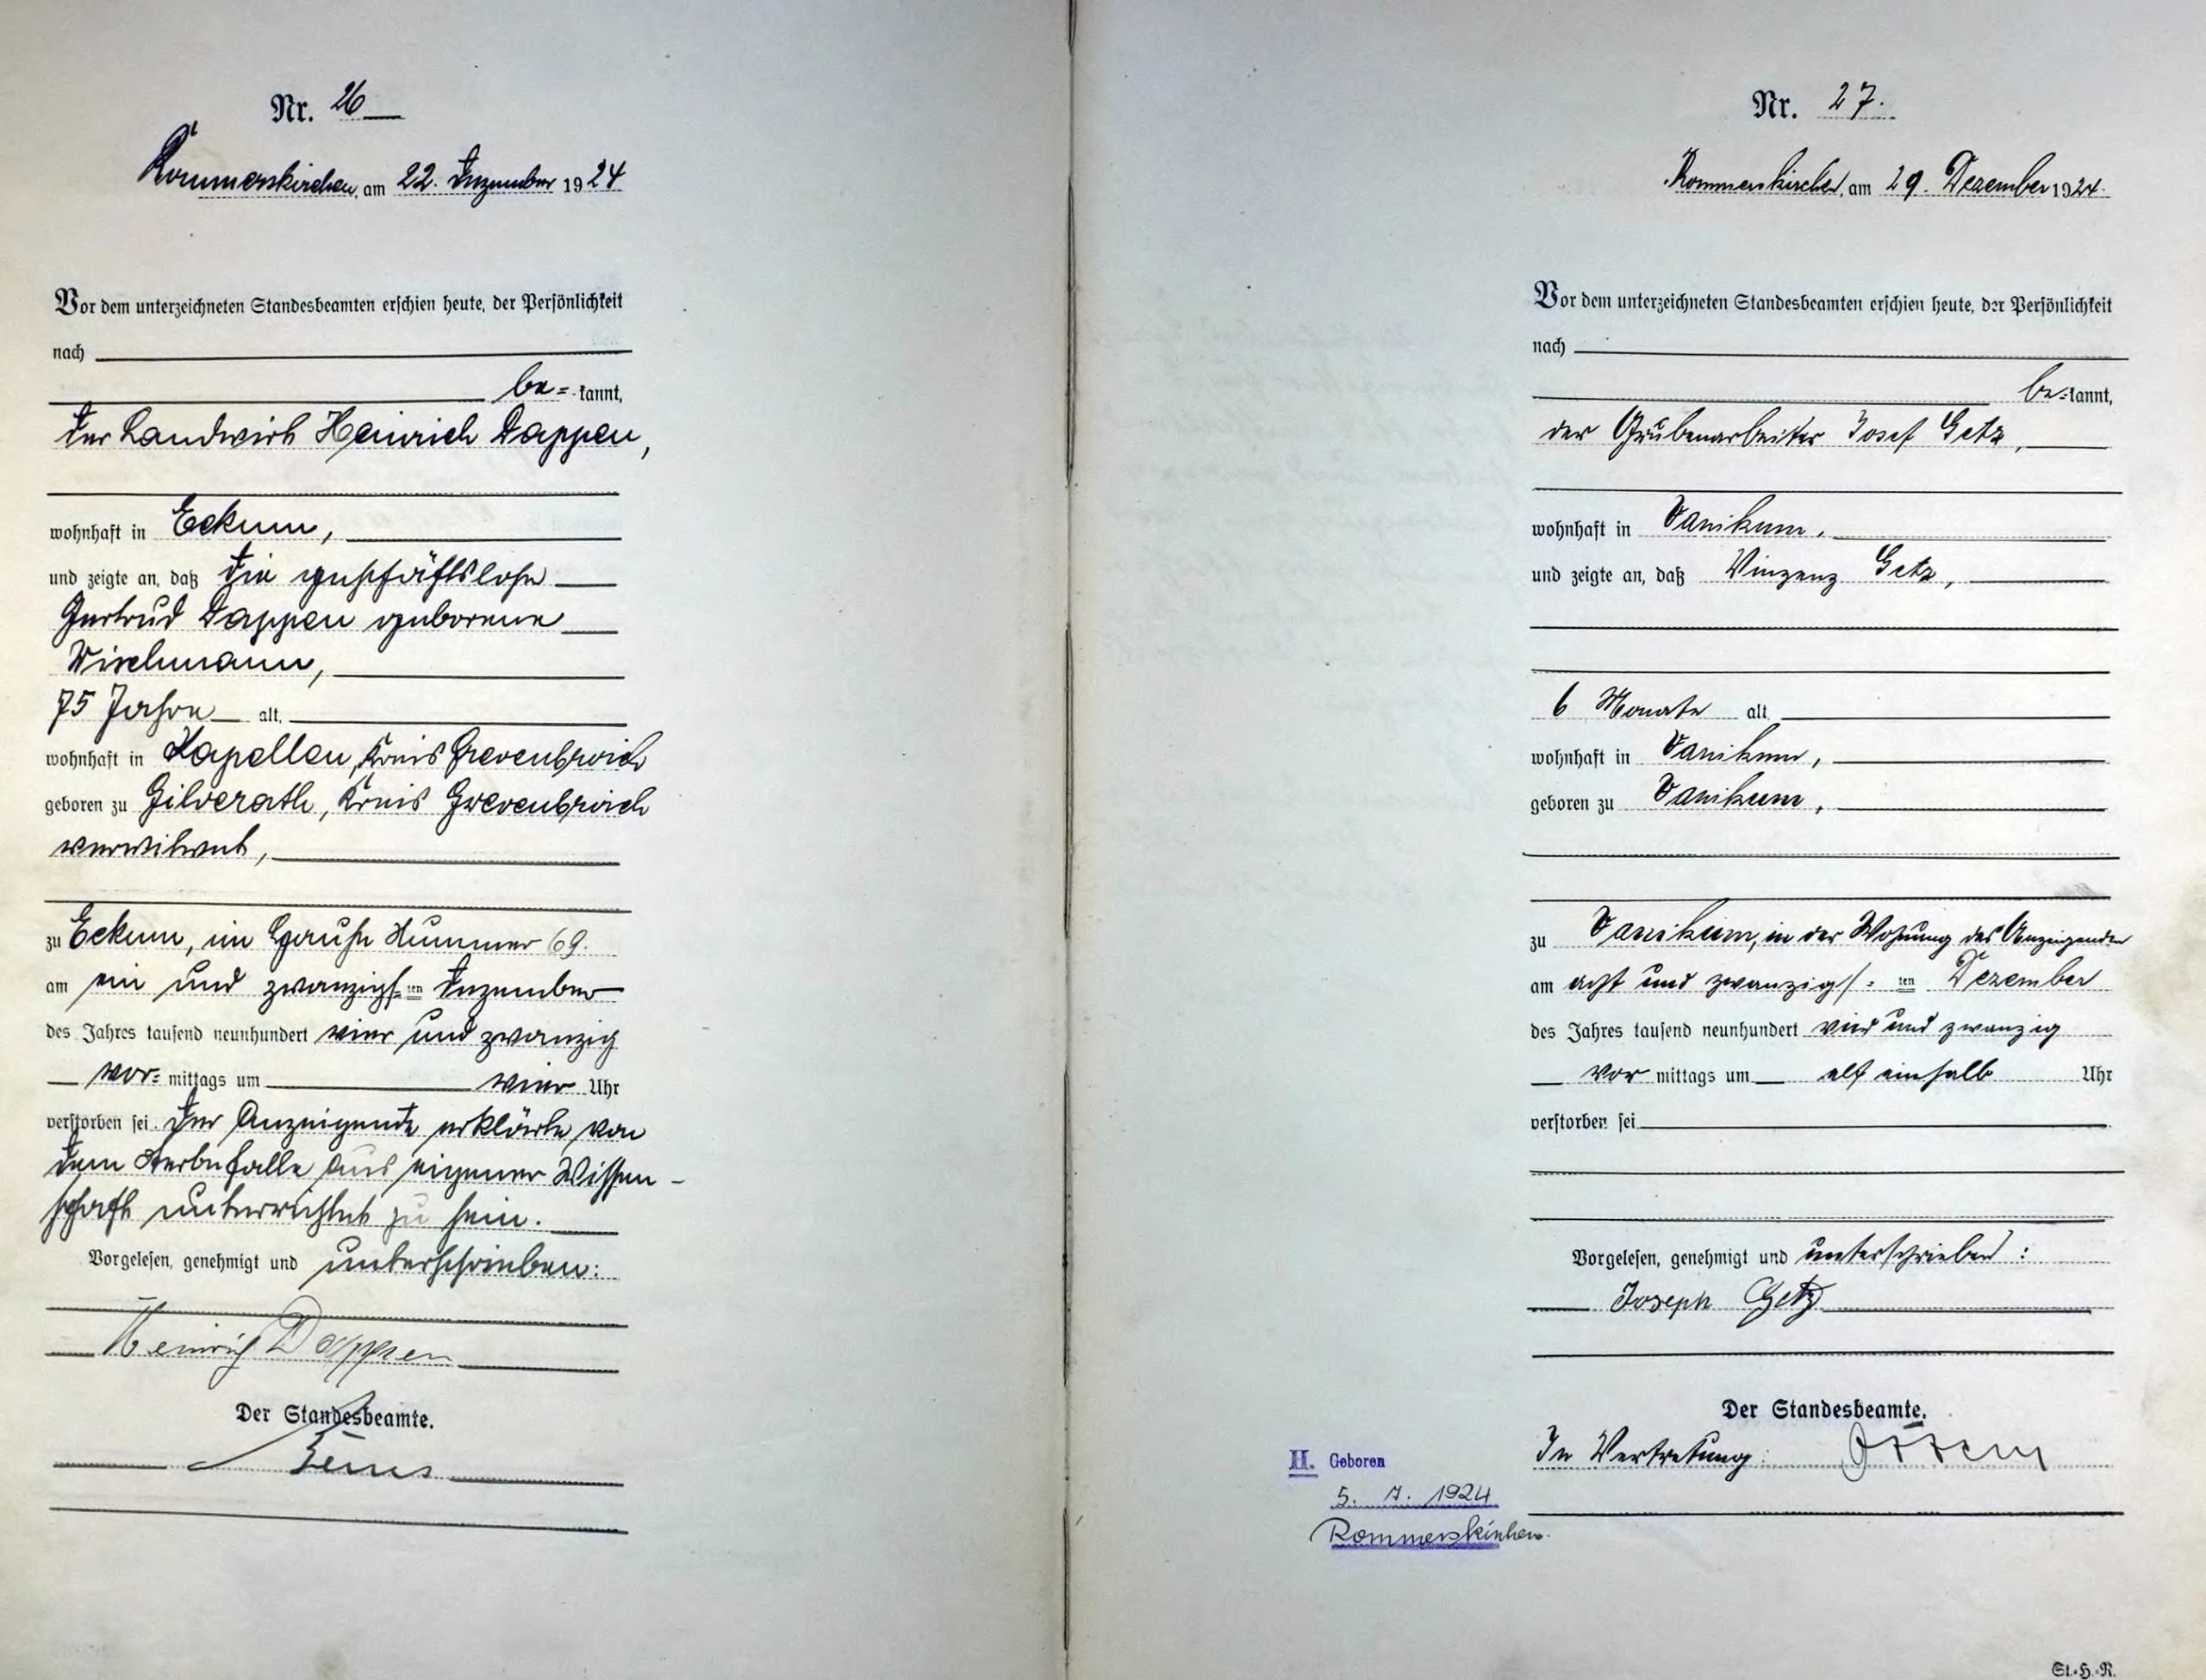 Nr. 26
Rommerskirchen, am 22. Dezember 1924
Vor dem unterzeichneten Standesbeamten erschien heute, der Persönlichkeit
nach
be= kannt,
der Landwirt Heinrich Dappen,
wohnhaft in Eckum,
und zeigte an, daß die geschäftslose
Gertrud Dappen geborene
Wischmann,
75 Jahre alt,
wohnhaft in Kapellen, Kreis Grevenbroich
geboren zu Gilverath, Kreis Grevenbroich
verwitwet,
zu Eckum, im Hause Nummer 69.
am ein und zwanzigs=ten Dezember
des Jahres tausend neunhundert vier und zwanzig
vor= mittags um vier Uhr
verstorben sei. Der Anzeigende erklärte von
dem Sterbefalle aus eigener Wissen-
schaft unterrichtet zu sein.
Vorgelesen, genehmigt und unterschrieben:
Heinrich Dappen
Der Standesbeamte.
Nr. 27.
Rommerskirchen, am 29. Dezember 1924.
Vor dem unterzeichneten Standesbeamten erschien heute, der Persönlichkeit
nach
be= kannt,
der Grubenarbeiter Josef Getz,
wohnhaft in Vanikum,
und zeigte an, daß Vinzenz Getz,
6 Monate alt,
wohnhaft in Vanikum,
geboren zu Vanikum,
zu Vanikum, in der Wohnung des Anzeigenden
am acht und zwanzigs=ten Dezember
des Jahres tausend neunhundert vier und zwanzig
vor mittags um elf einhalb Uhr
verstorben sei
Vorgelesen, genehmigt und unterschrieben:
Joseph Getz
Der Standesbeamte.
In Vertretung:
H. Geboren
5. 7. 1924
Rommerskirchen.
St.=H.=R.